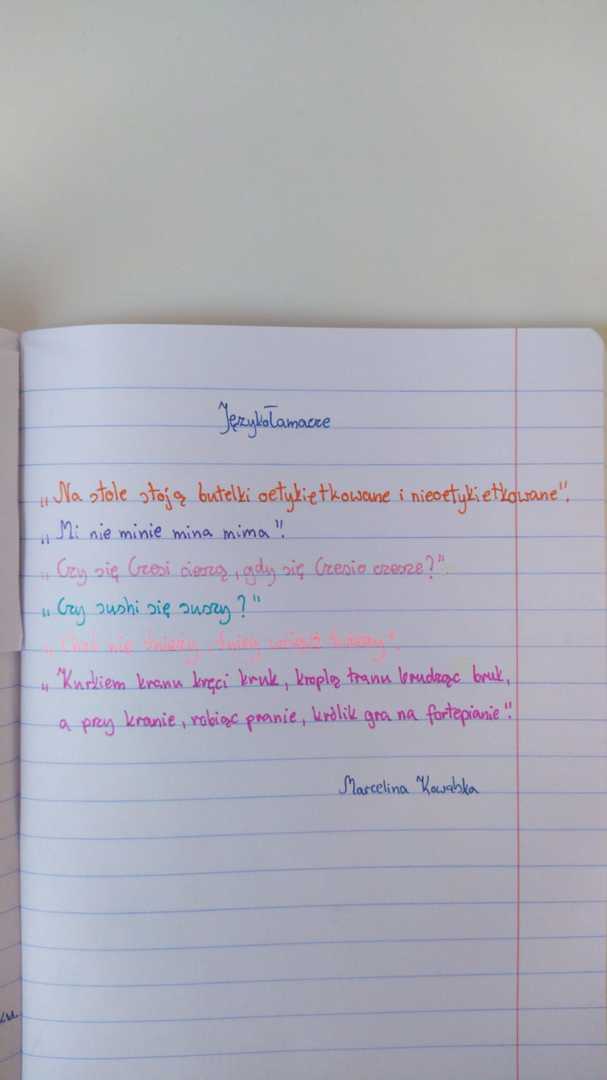 Językołamacze
„Na stole stoją butelki oetykietkowane i nieoetykietkowane".
„Mi nie minie mina mima".
„Czy się Czesi cieszą, gdy się Czesio czesze?".
„Czy sushi się suszy?"
nie
„Kurkiem kranu kręci kruk, kroplą tranu brudząc bruk,
a przy kranie, robiąc pranie, królik gra na fortepianie".
Marcelina